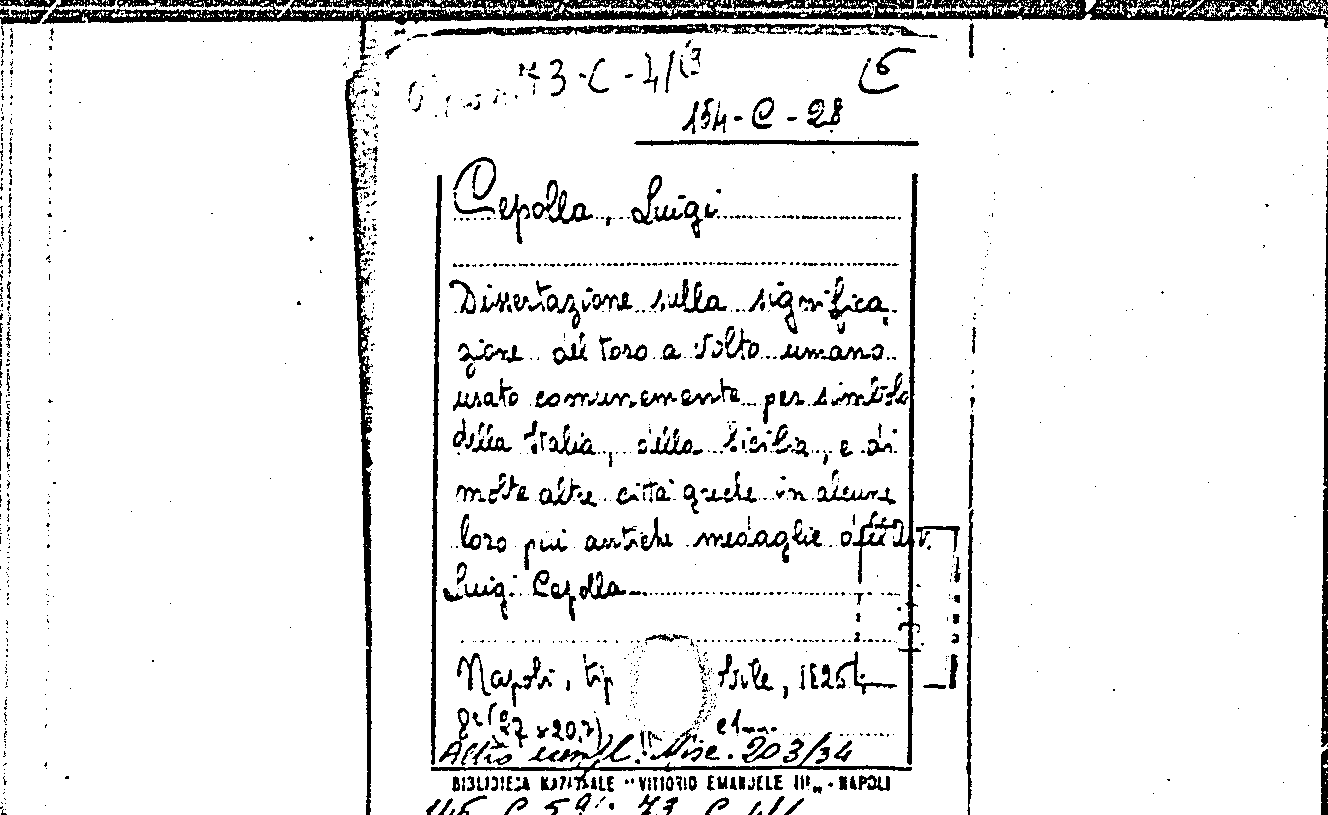 73-C-4/(3
154-C-28
Cepolla, Luigi
Dissertazione sulla significa,
zione del toro a volto umano
usato comunemente per simbolo
della Italia, della Sicilia, e di
molte altre città greche in alcune
loro più antiche medaglie dell'Avv.
Luigi Cepolla
Napoli, tip , 1825
8º (27 x 20,7)
Altro Misc. 203/34
BIBLIOTECA NAZIONALE "VITTORIO EMANUELE III„ - NAPOLI